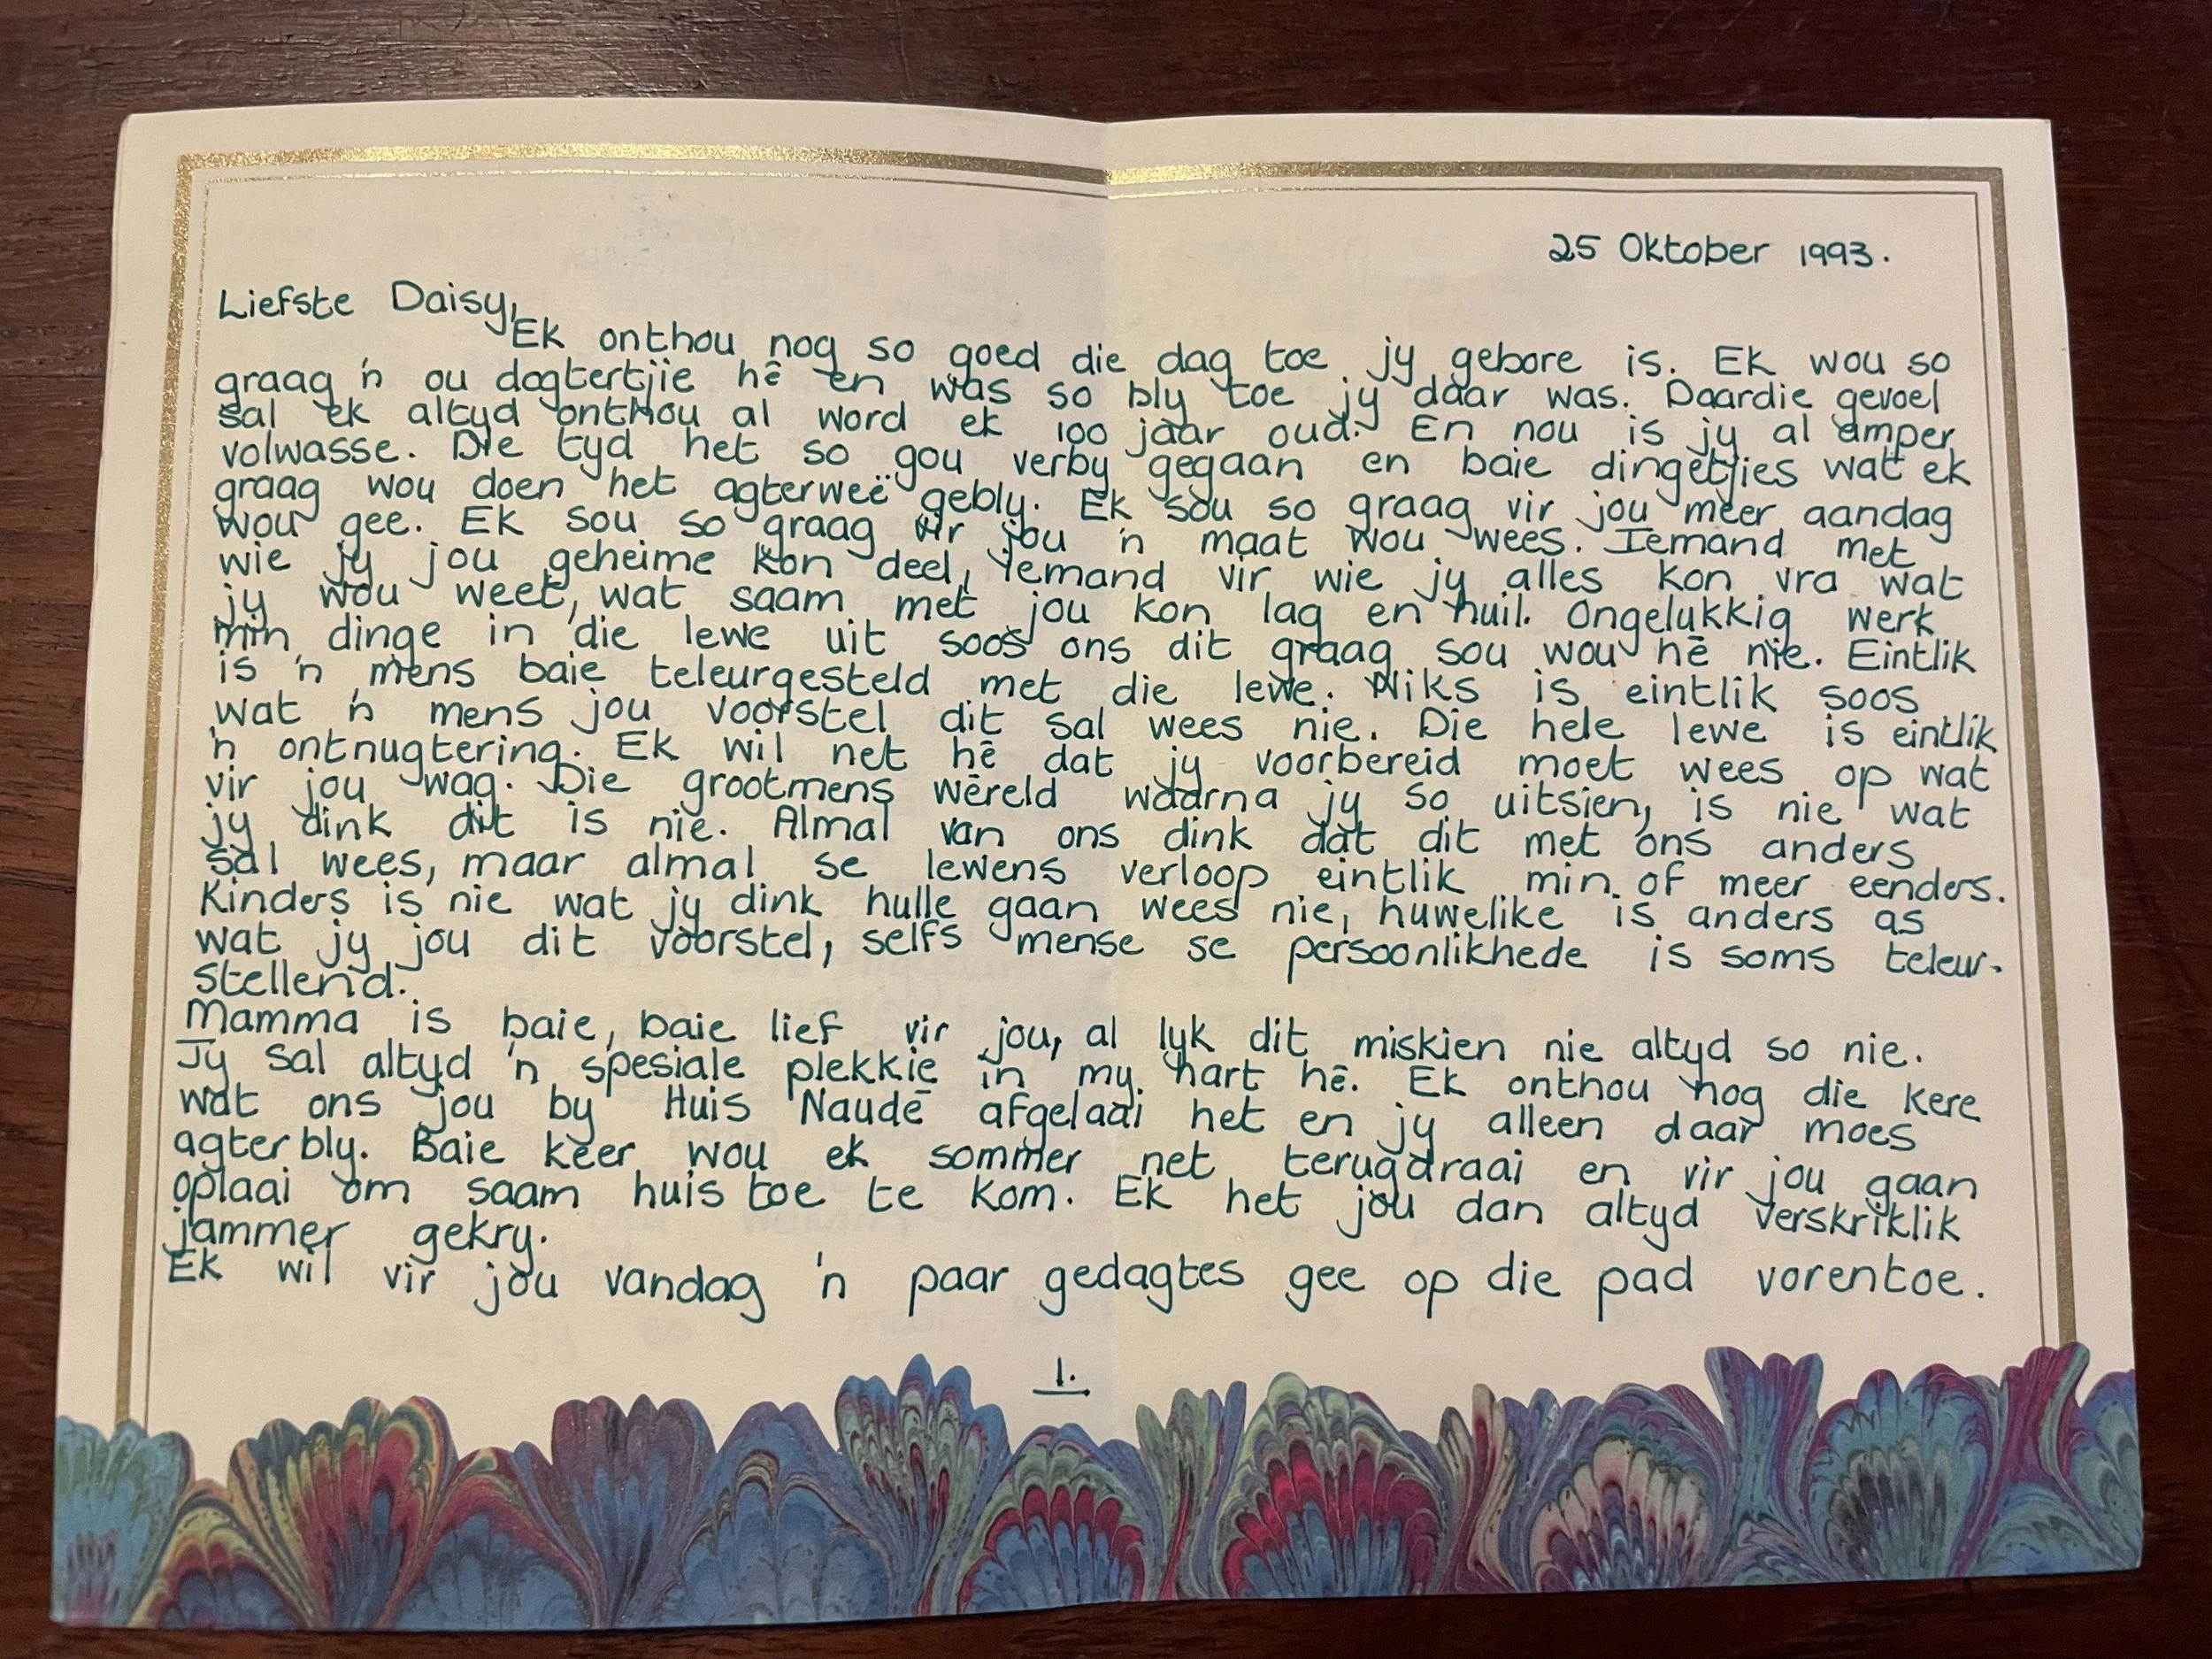 25 Oktober 1993.
Liefste Daisy,
Ek onthou nog so goed die dag toe jy gebore is. Ek wou so
graag 'n ou dogtertjie hê en was so bly toe jy daar was. Daardie gevoel
sal ek altyd onthou al word ek 100 jaar oud. En nou is jy al amper
volwasse. Die tyd het so gou verby gegaan en baie dingetjies wat ek
graag wou doen het agterweë gebly. Ek sou so graag vir jou meer aandag
wou gee. Ek sou so graag vir jou 'n maat wou wees. Iemand met
wie jy jou geheime kon deel, iemand vir wie jy alles kon vra wat
jy wou weet, wat saam met jou kon lag en huil. Ongelukkig werk
min dinge in die lewe uit soos ons dit graag sou wou hê nie. Eintlik
is 'n mens baie teleurgesteld met die lewe. Niks is eintlik soos
wat 'n mens jou voorstel dit sal wees nie. Die hele lewe is eintlik
'n ontnugtering. Ek wil net hê dat jy voorbereid moet wees op wat
vir jou wag. Die grootmens wêreld waarna jy so uitsien, is nie wat
jy dink dit is nie. Almal van ons dink dat dit met ons anders
sal wees, maar almal se lewens verloop eintlik min of meer eenders.
Kinders is nie wat jy dink hulle gaan wees nie, huwelike is anders as
wat jy jou dit voorstel, selfs mense se persoonlikhede is soms teleur-
stellend.
Mamma is baie, baie lief vir jou, al lyk dit miskien nie altyd so nie.
Jy sal altyd 'n spesiale plekkie in my hart hê. Ek onthou nog die kere
wat ons jou by Huis Naudé afgelaai het en jy alleen daar moes
agterbly. Baie keer wou ek sommer net terugdraai en vir jou gaan
oplaai om saam huis toe te kom. Ek het jou dan altyd verskriklik
jammer gekry.
Ek wil vir jou vandag 'n paar gedagtes gee op die pad vorentoe.
1.